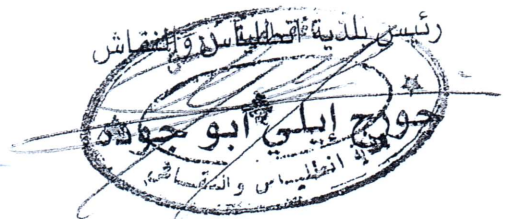 رئيس بلدية أنطلياس والنقاش
جورج إيلي أبو جوده
انطلياس والنقاش